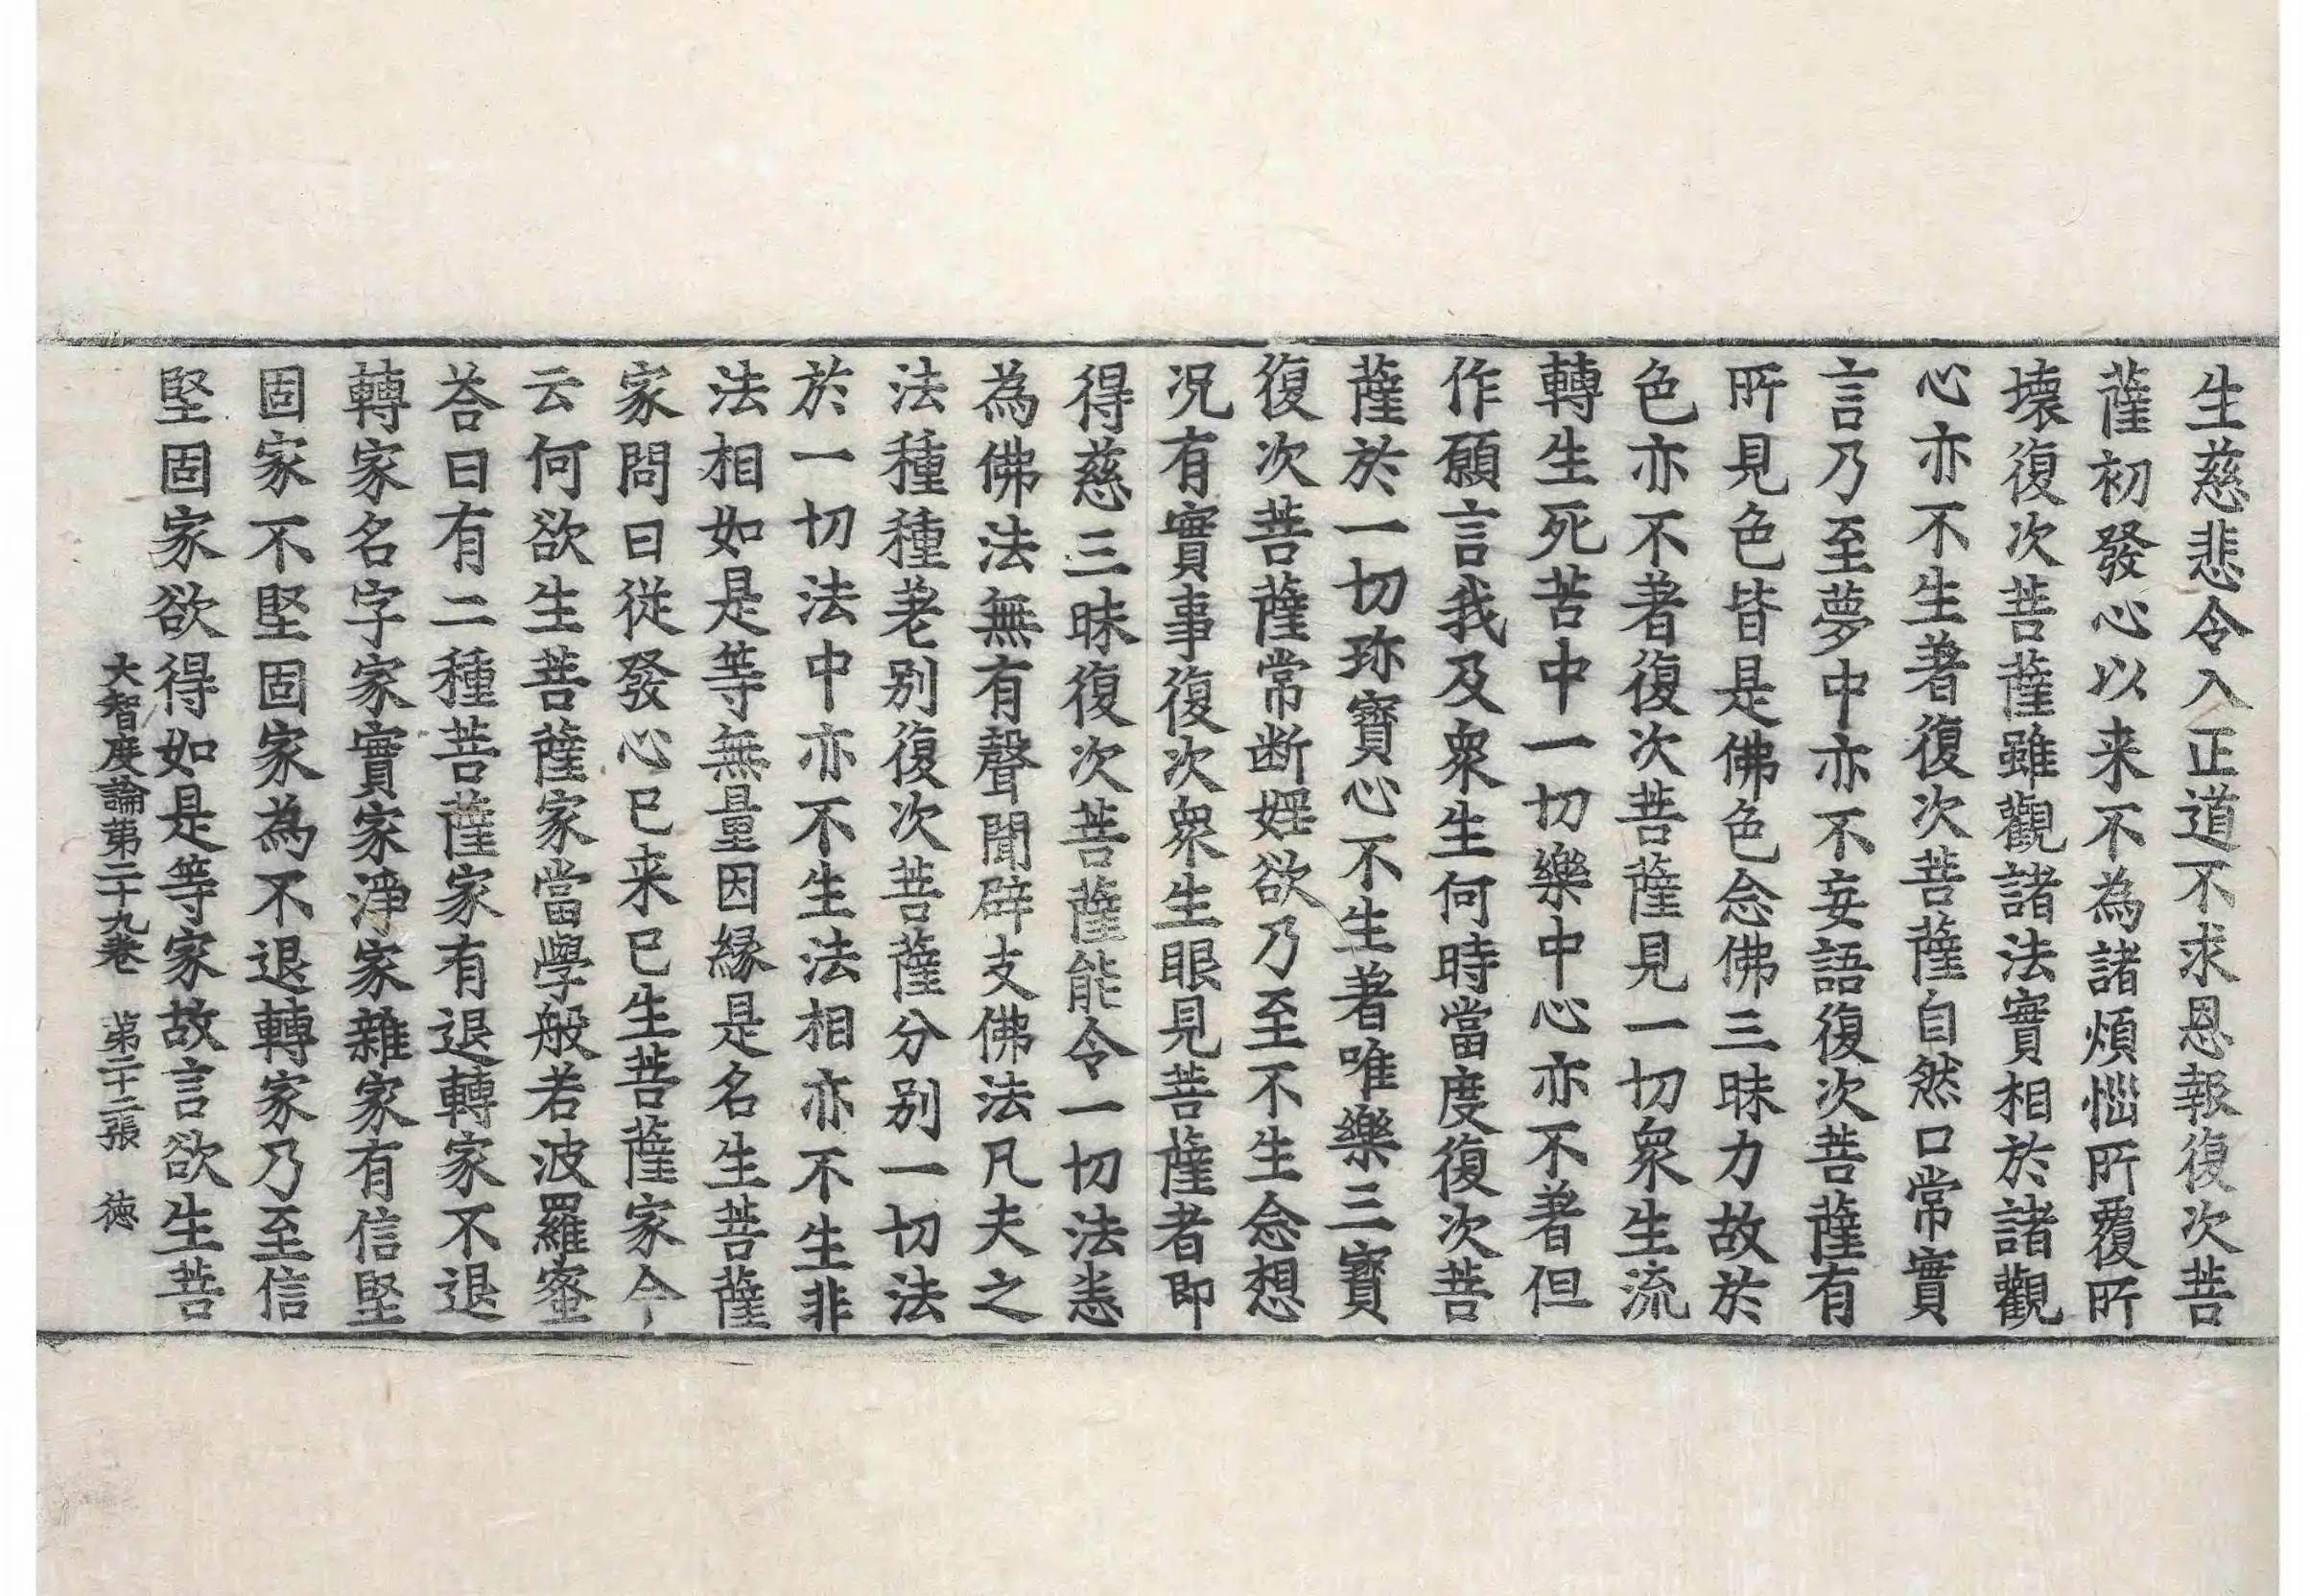 生慈悲令入正道不求恩報復次菩
薩初發心以来不為諸煩惱所覆所
壞復次菩薩雖觀諸法實相於諸觀
心亦不生著復次菩薩自然口常實
言乃至夢中亦不妄語復次菩薩有
所見色皆是佛色念佛三昧力故於
色亦不著復次菩薩見一切衆生流
轉生死苦中一切樂中心亦不著但
作願言我及衆生何時當度復次菩
薩於一切珎寶心不生著唯樂三寶
復次菩薩常断婬欲乃至不生念想
况有實事復次衆生眼見菩薩者即
得慈三昧復次菩薩能令一切法悉
為佛法無有聲聞辟支佛法凡夫之
法種種荖別復次菩薩分别一切法
於一切法中亦不生法相亦不生非
法相如是等無量因縁是名生菩薩
家問曰從發心已来已生菩薩家今
云何欲生菩薩家當學般若波羅蜜
荅曰有二種菩薩家有退轉家不退
轉家名字家實家淨家雜家有信堅
固家不堅固家為不退轉家乃至信
堅固家欲得如是等家故言欲生菩
大智度論第二十九卷 第二十二張 徳